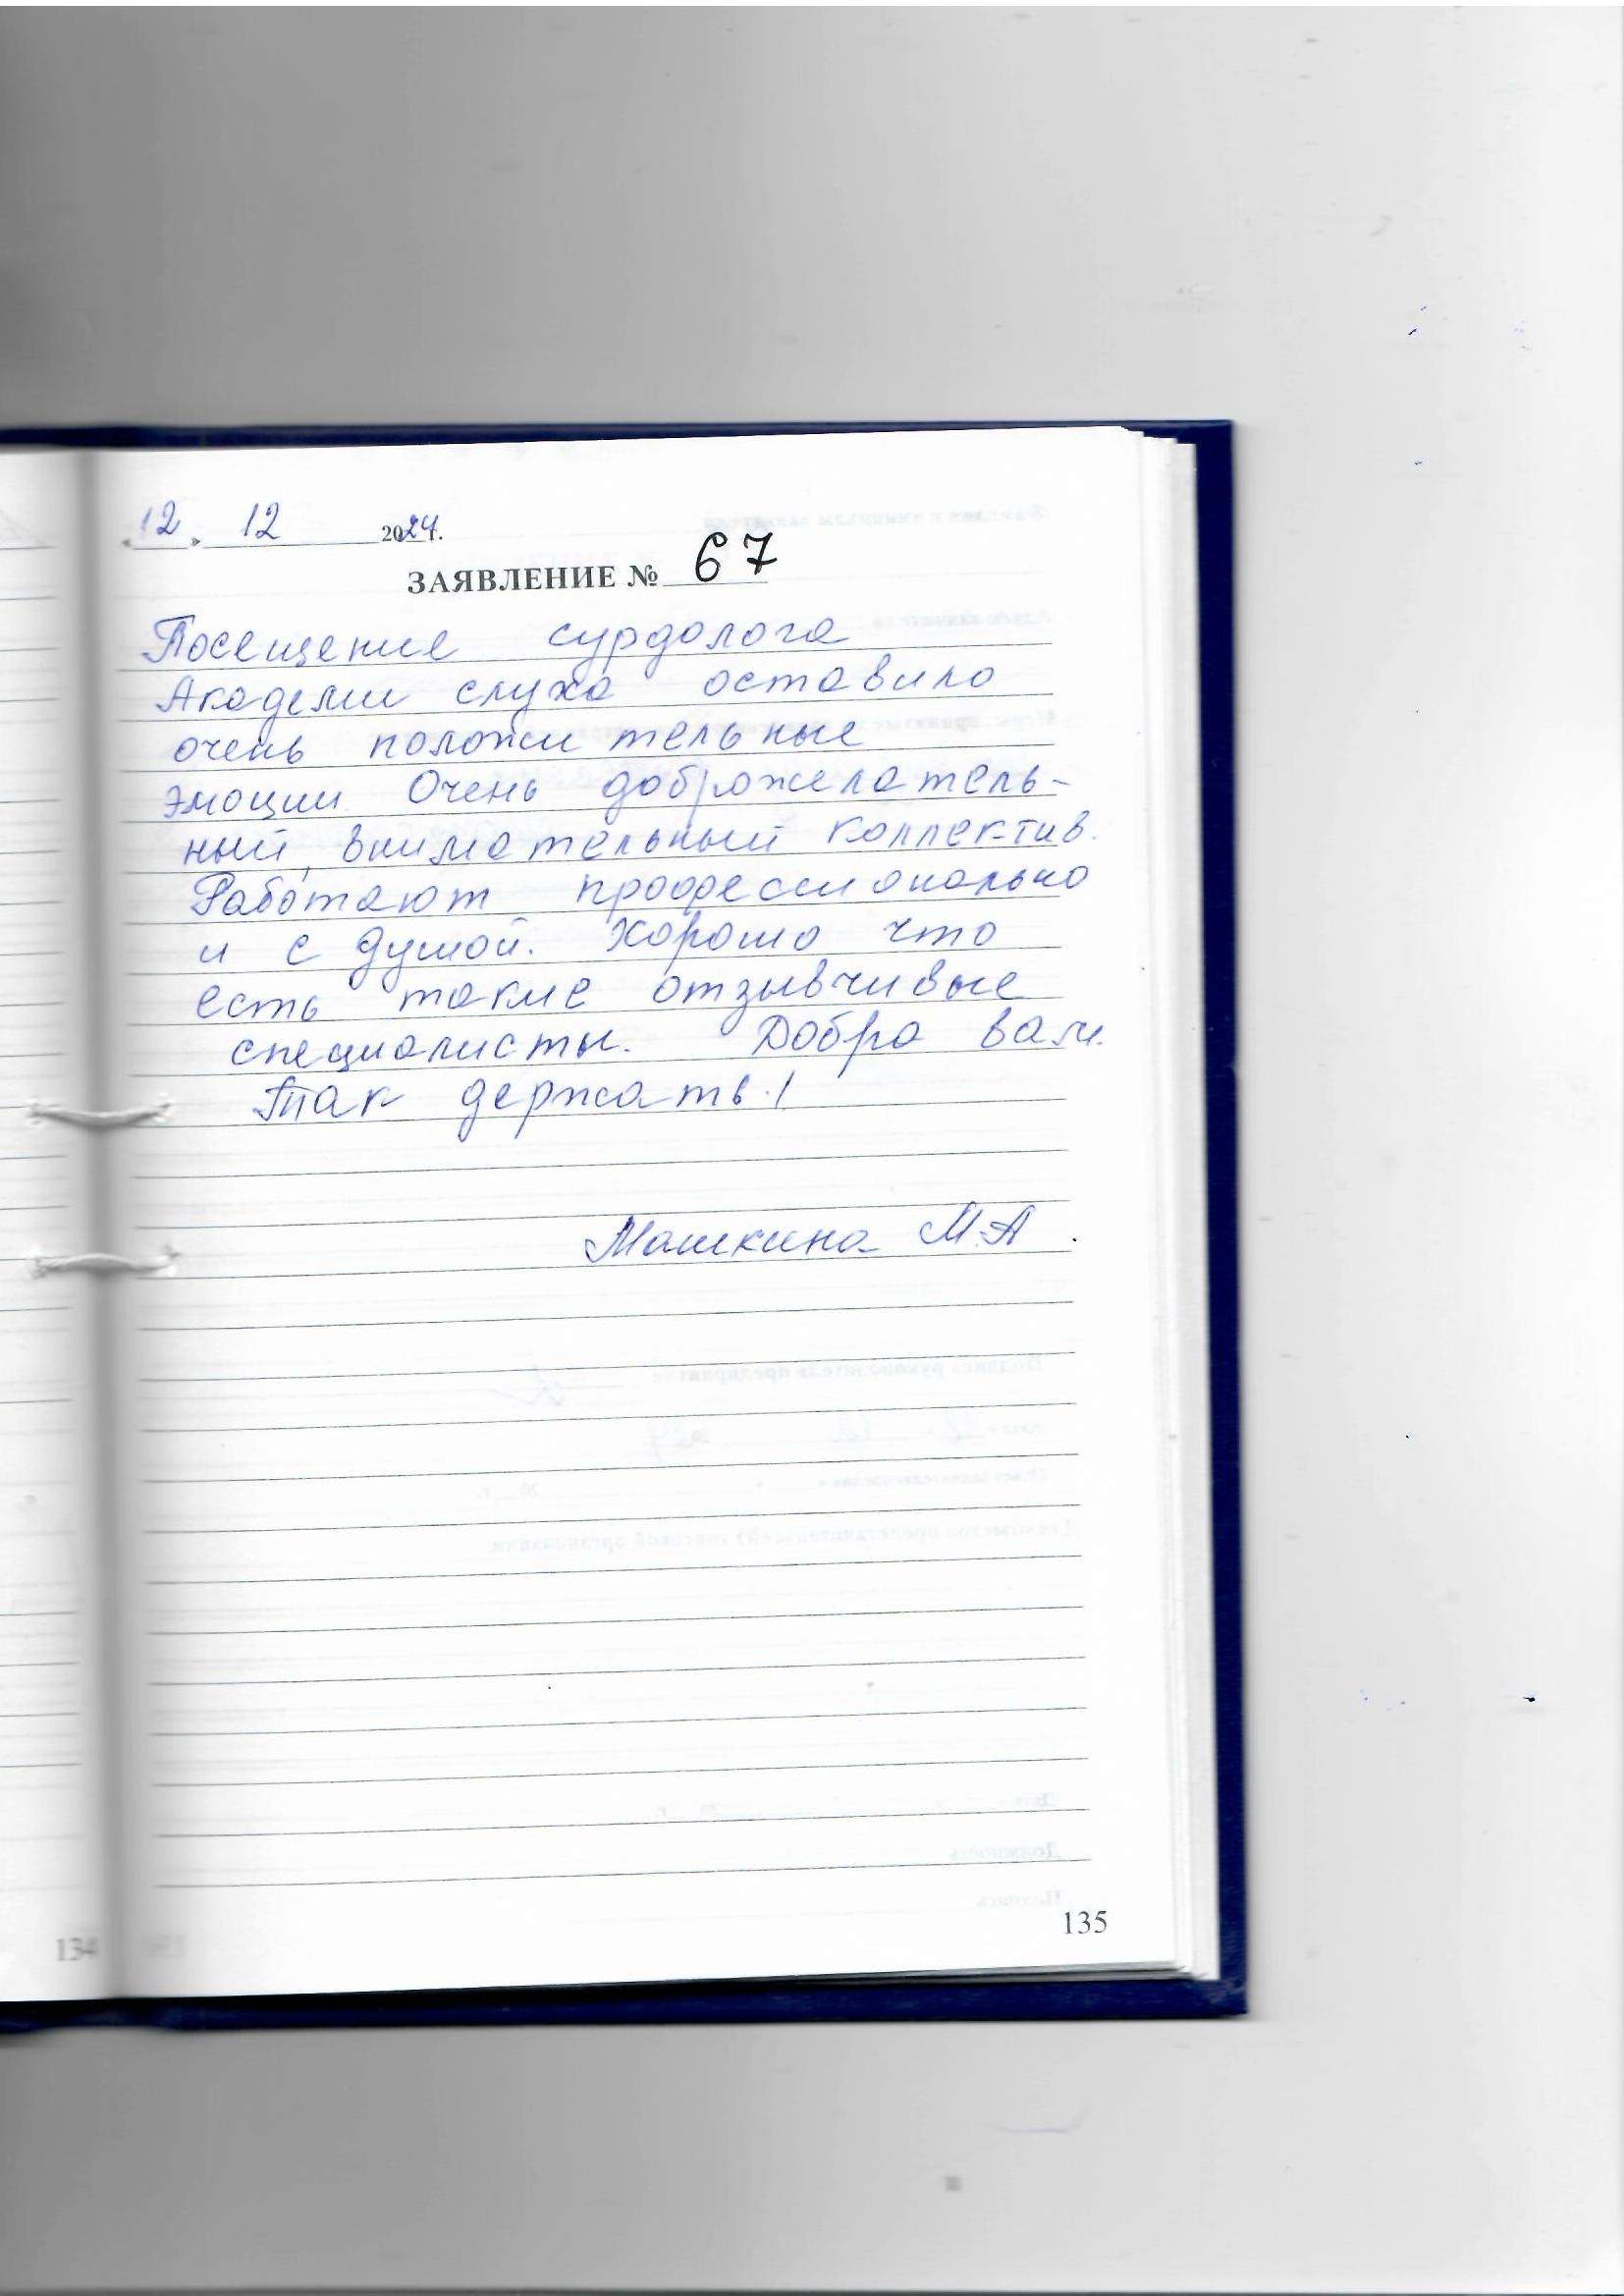 «12» 12 2024г.
ЗАЯВЛЕНИЕ № 67
Посещение сурдолога
Академи слуха оставило
очень положительные
эмоции. Очень доброжелатель-
ный, внимательный коллектив.
Работают профессионально
и с душой. Хорошо что
есть такие отзывчивые
специалисты. Добра вам.
Так держать!
Машкина М.А.
134
135